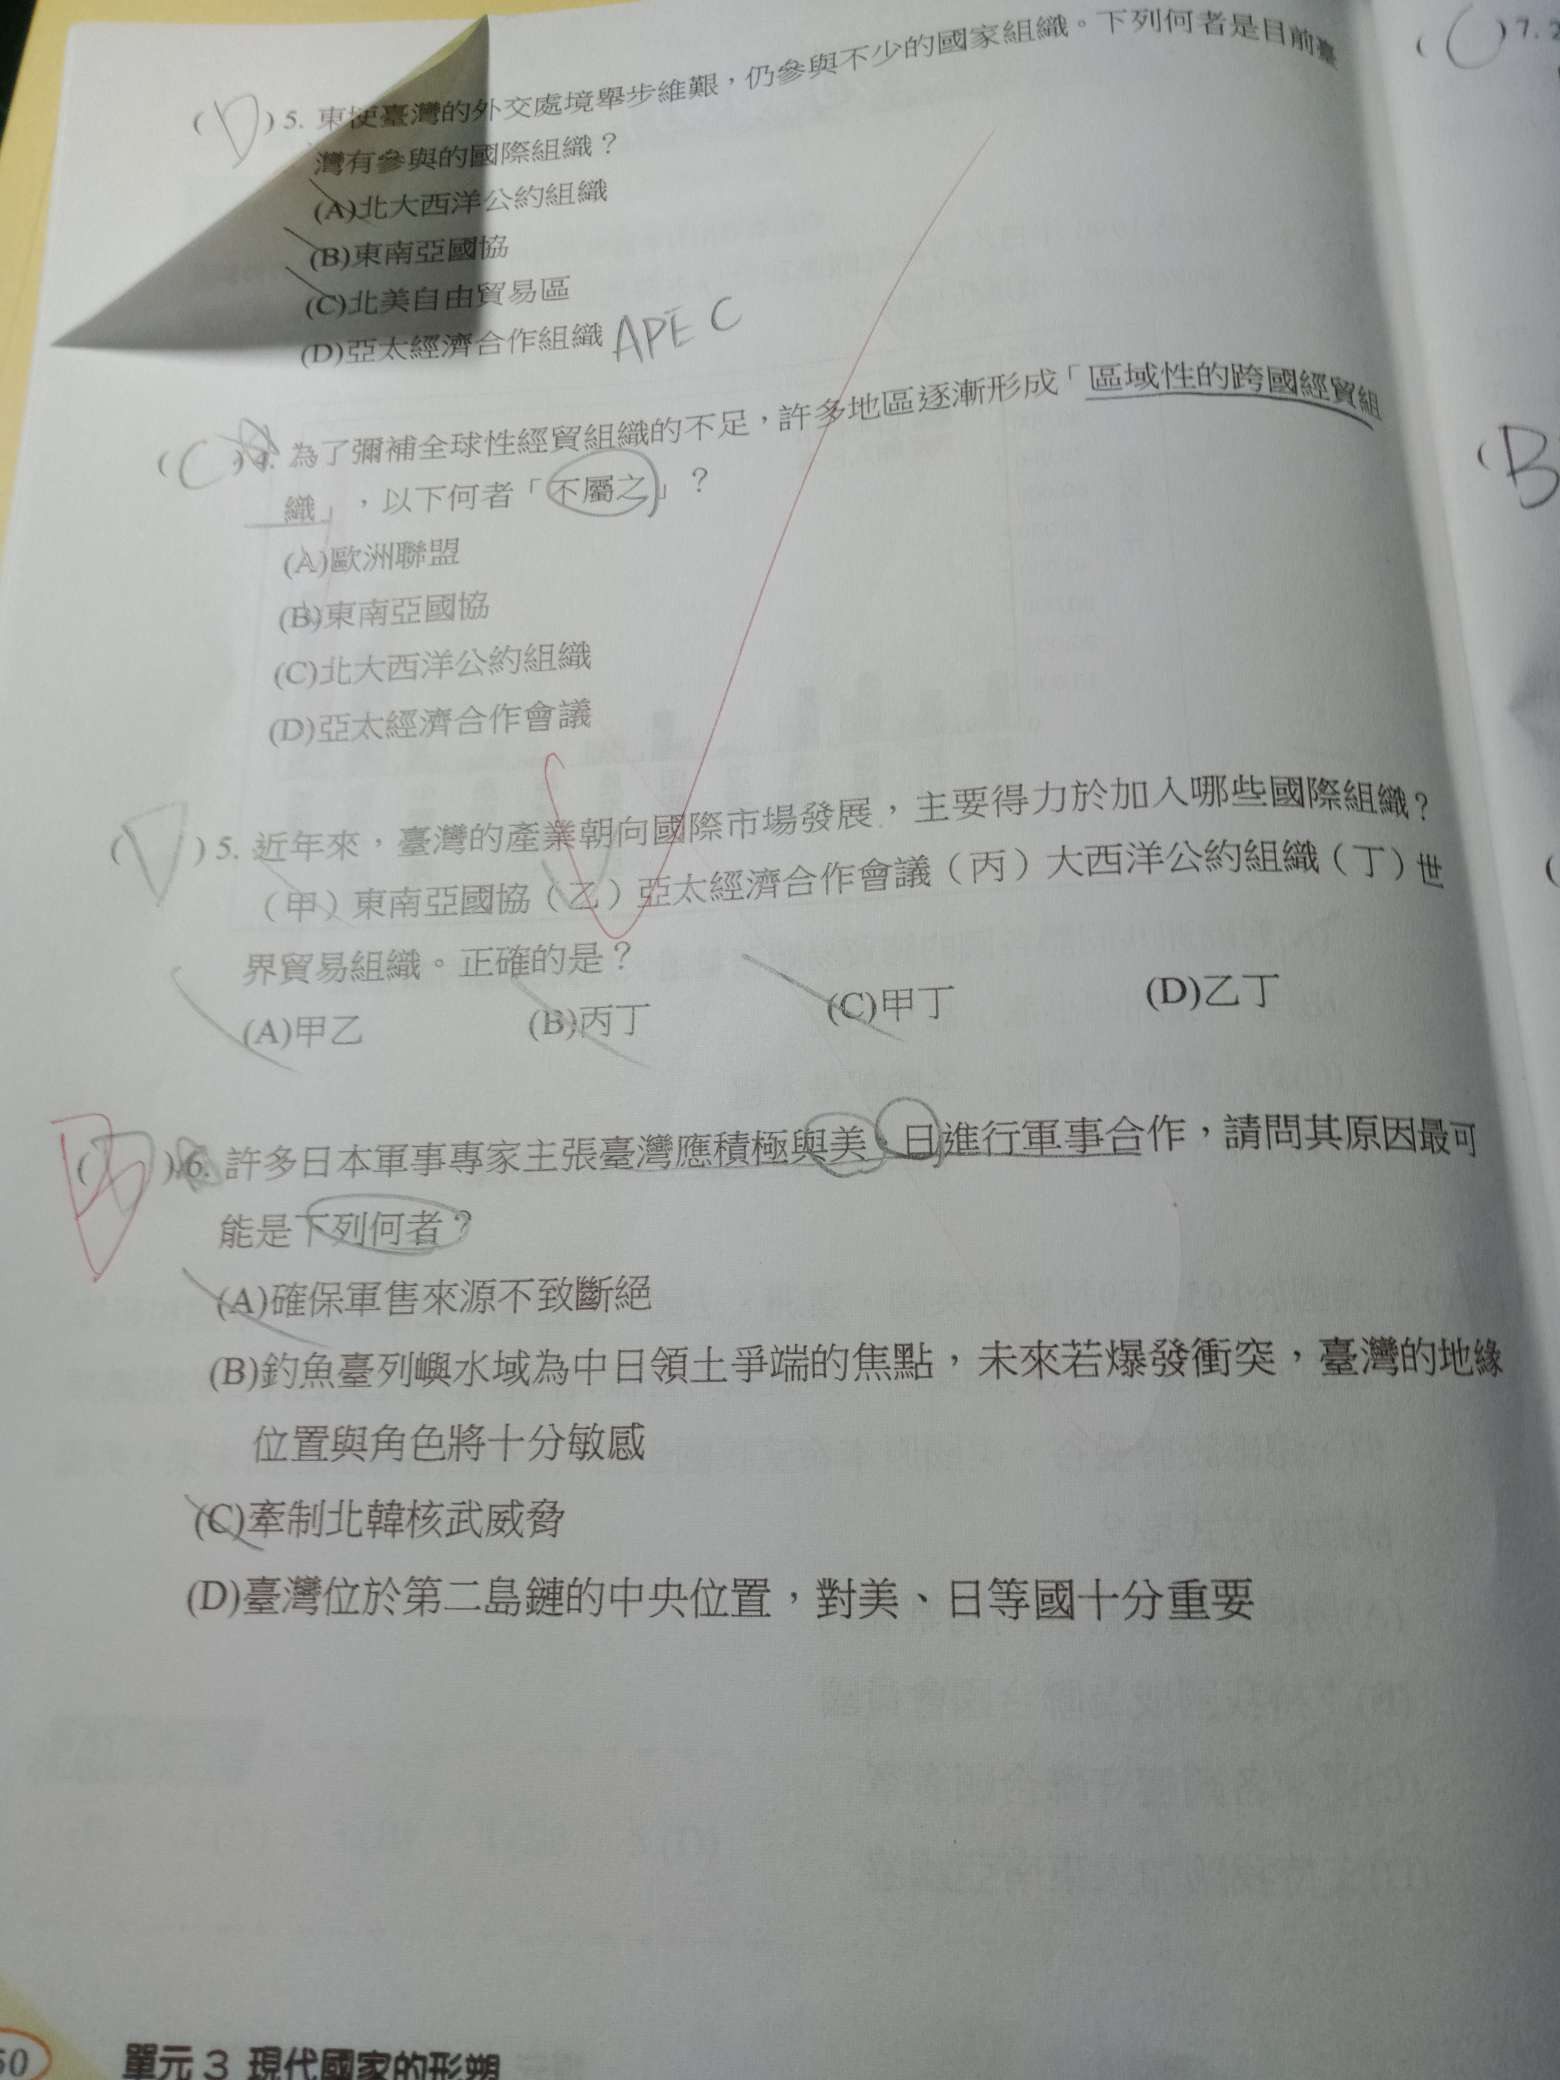 (D) 5. 東埂臺灣的外交處境舉步維艱，仍參與不少的國家組織。下列何者是目前臺
灣有參與的國際組織？
(A)北大西洋公約組織
(B)東南亞國協
(C)北美自由貿易區
(D)亞太經濟合作組織 APEC
(C) 4. 為了彌補全球性經貿組織的不足，許多地區逐漸形成「區域性的跨國經貿組
織」，以下何者「不屬之」？
(A)歐洲聯盟
(B)東南亞國協
(C)北大西洋公約組織
(D)亞太經濟合作會議
(D) 5. 近年來，臺灣的產業朝向國際市場發展，主要得力於加入哪些國際組織？
（甲）東南亞國協（乙）亞太經濟合作會議（丙）大西洋公約組織（丁）世
界貿易組織。正確的是？
(A)甲乙 (B)丙丁 (C)甲丁 (D)乙丁
( ) 6. 許多日本軍事專家主張臺灣應積極與美、日進行軍事合作，請問其原因最可
能是下列何者？
(A)確保軍售來源不致斷絕
(B)釣魚臺列嶼水域為中日領土爭端的焦點，未來若爆發衝突，臺灣的地緣
位置與角色將十分敏感
(C)牽制北韓核武威脅
(D)臺灣位於第二島鏈的中央位置，對美、日等國十分重要
單元 3 現代國家的形塑
(C) 7.
(B